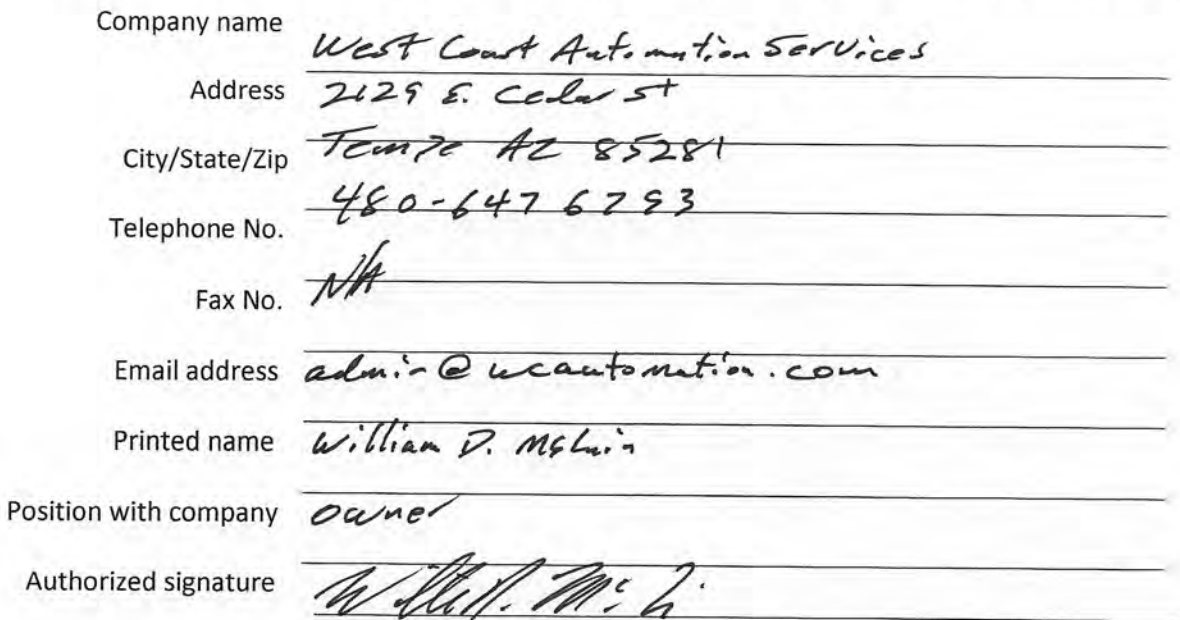 Company name West Coast Automation Services
Address 2129 E. Cedar st
City/State/Zip Tempe AZ 85281
Telephone No. 480-647 6793
Fax No. N/A
Email address admin@wcautomation.com
Printed name William D.
Position with company owner
Authorized signature